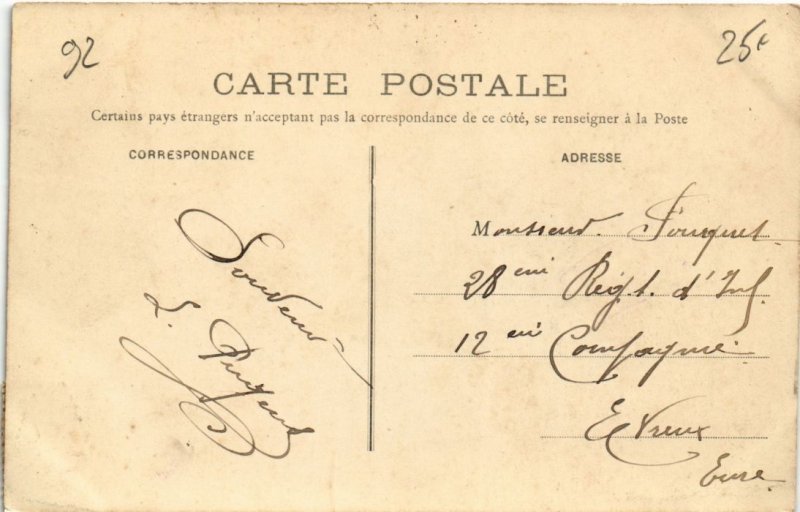 92
25 c
CARTE POSTALE
Certains pays étrangers n'acceptant pas la correspondance de ce côté, se renseigner à la Poste
CORRESPONDANCE
Souvenir
L.
ADRESSE
Monsieur Fouquet
28 eme Régt. d'Inf.
12 eme Compagnie
Evreux
Eure